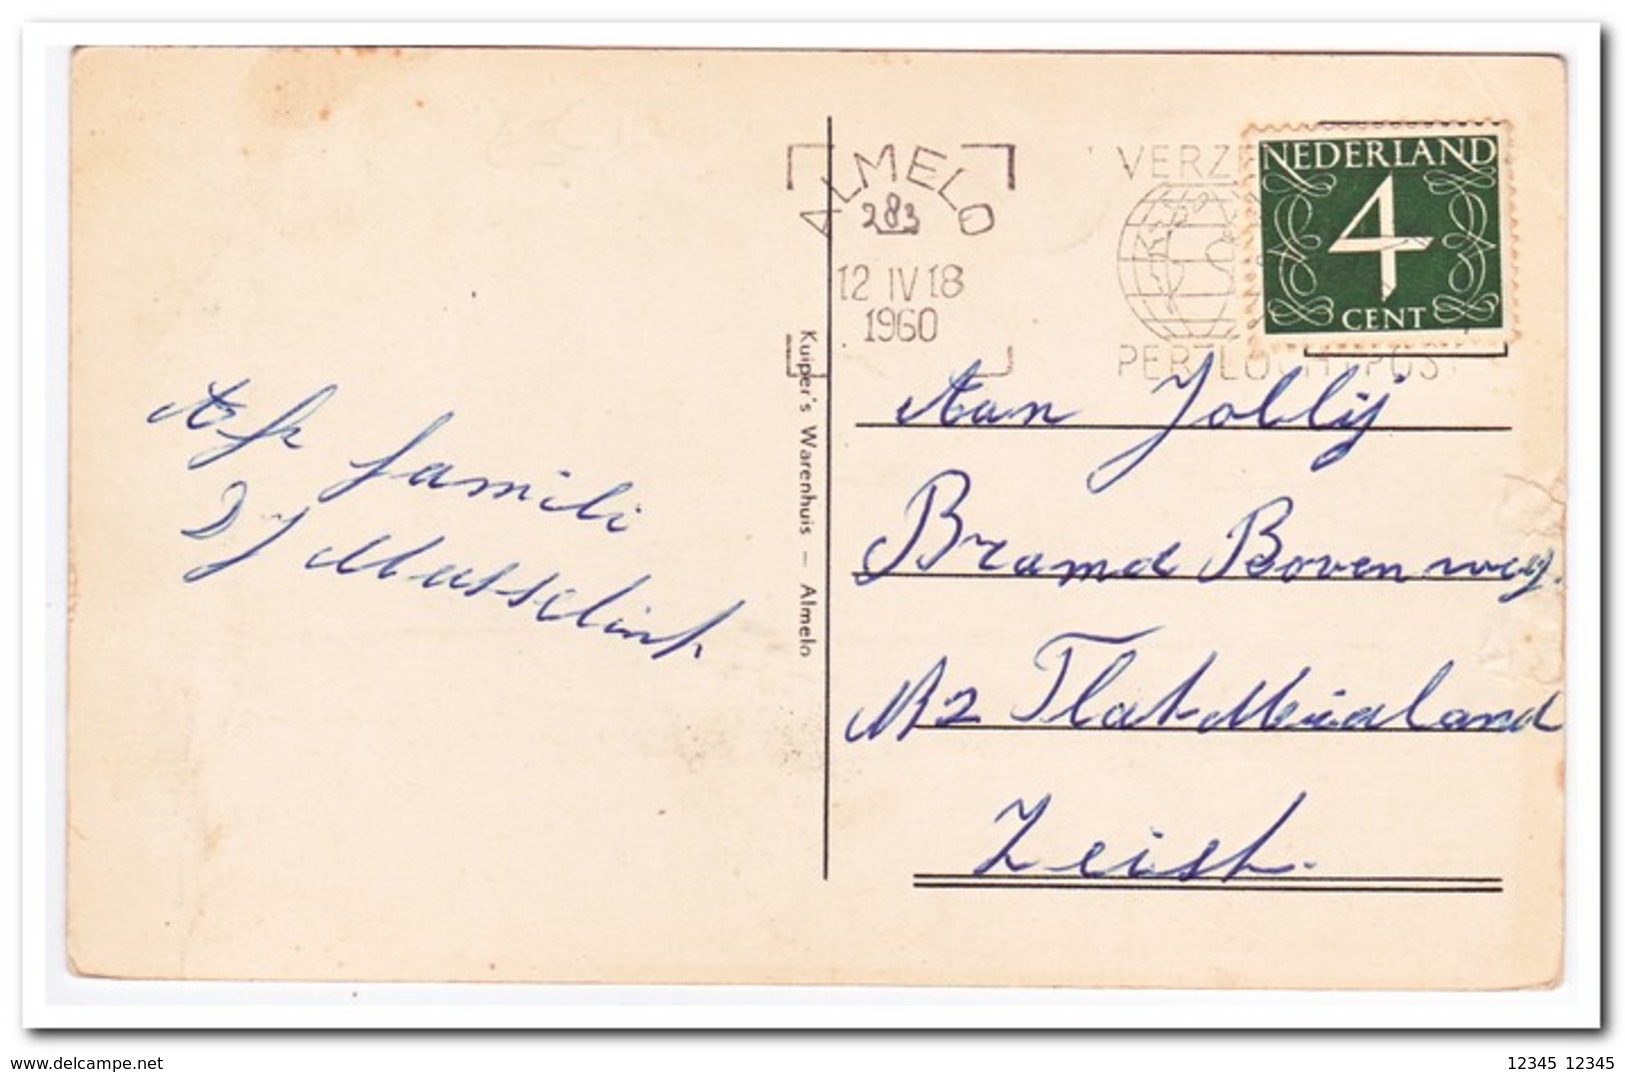 ALMELO
283
12 IV 18
1960
VERZ
PER LUCHTPOST
NEDERLAND
4
CENT
Kuiper's Warenhuis — Almelo
Afz familie
DJ Musselink
Aan Jolly
Bovenweg.
Flat
Zeist.
delcampe.net
12345 12345